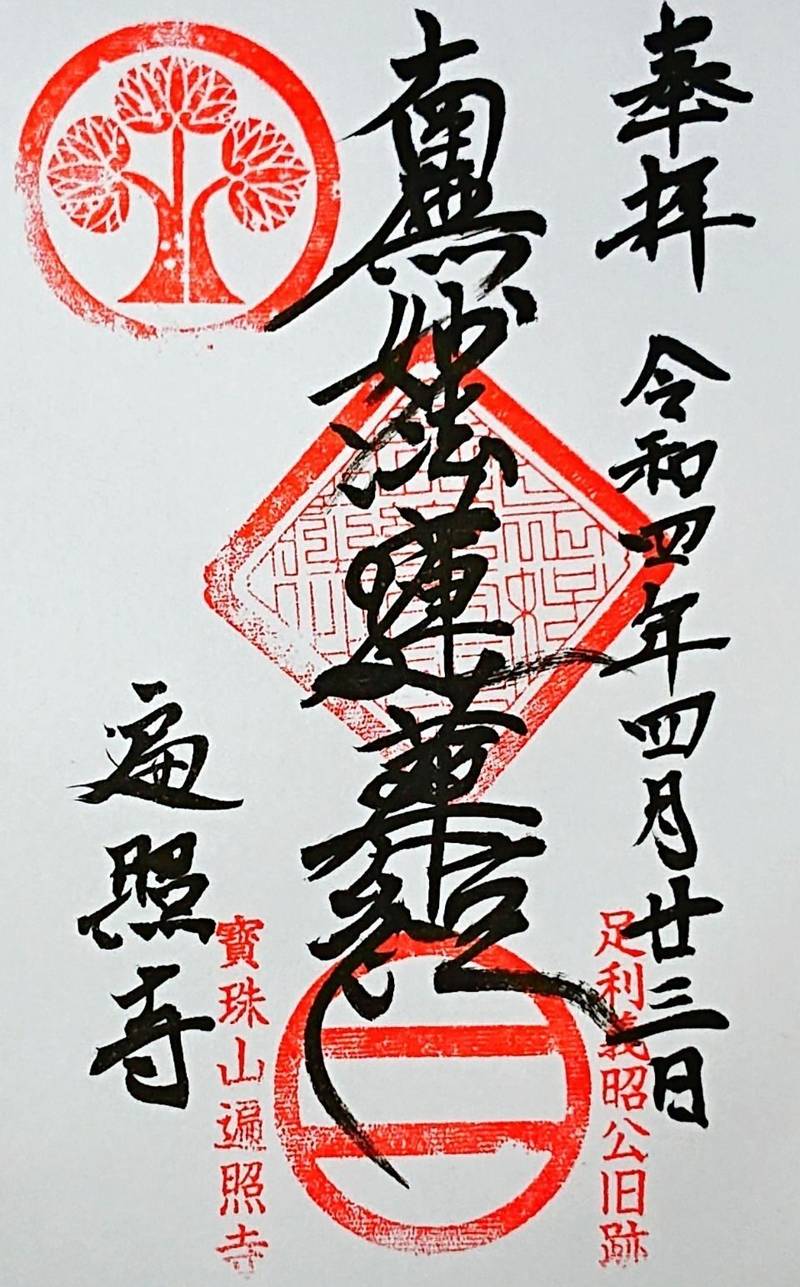 奉拝 令和四年四月廿三日
足利義昭公旧跡
南無妙法蓮華経
寳珠山遍照寺
遍照寺